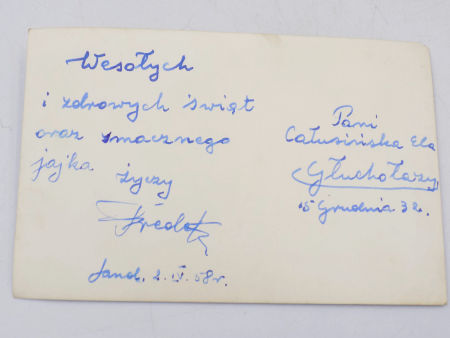 Wesołych
i zdrowych świąt
oraz smacznego
jajka
życzy
Sand. 2.IV.58r.
Pani
Całusińska Ela
Głuchołazy
15 Grudnia 32.